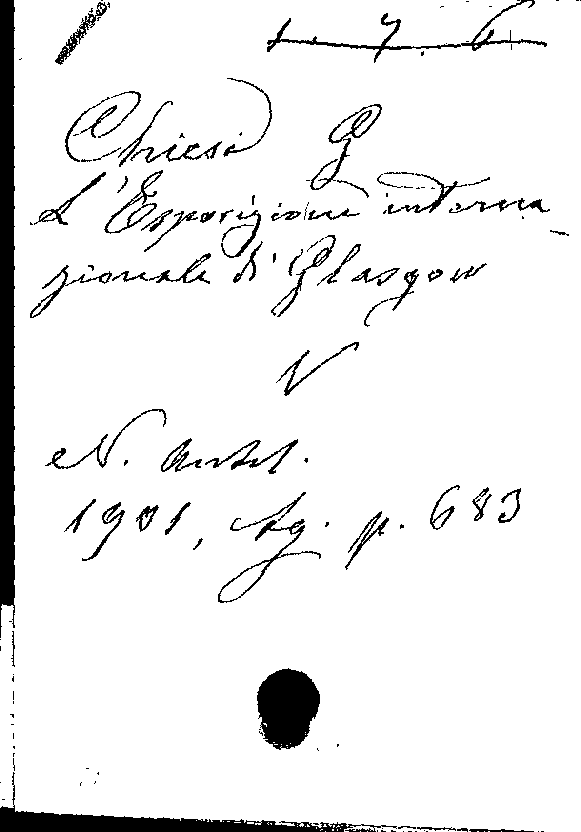 1. 7. 6
Chiesi G
L'Esposizione interna_
zionale di Glasgow
V
N. Antol.
1901, Ag. p. 683